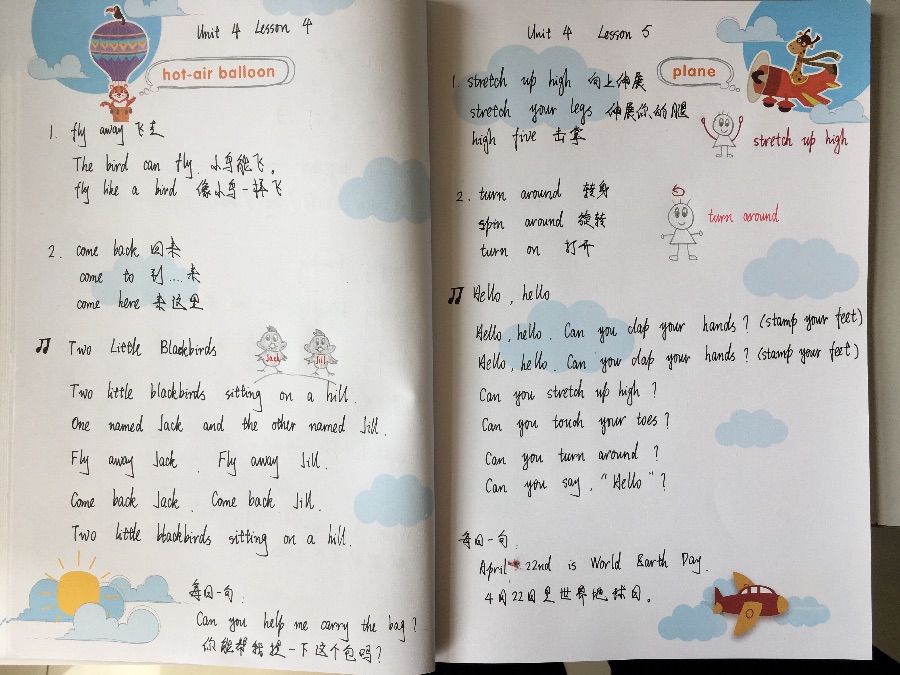 Unit 4 Lesson 4
hot-air balloon
1. fly away 飞走
The bird can fly. 小鸟能飞。
fly like a bird 像小鸟一样飞
2. come back 回来
come to 到....来
come here 来这里
Two Little Blackbirds
Jack Jill
Two little blackbirds sitting on a hill.
One named Jack and the other named Jill.
Fly away Jack. Fly away Jill.
Come back Jack. Come back Jill.
Two little blackbirds sitting on a hill.
每日一句:
Can you help me carry the bag?
你能帮我提一下这个包吗?
Unit 4 Lesson 5
plane
1. stretch up high 向上伸展
stretch your legs 伸展你的腿
high five 击掌
stretch up high
2. turn around 转身
spin around 旋转
turn on 打开
turn around
Hello, hello
Hello, hello. Can you clap your hands? (stamp your feet)
Hello, hello. Can you clap your hands? (stamp your feet)
Can you stretch up high?
Can you touch your toes?
Can you turn around?
Can you say, "Hello"?
每日一句:
April 22nd is World Earth Day.
4月22日是世界地球日。